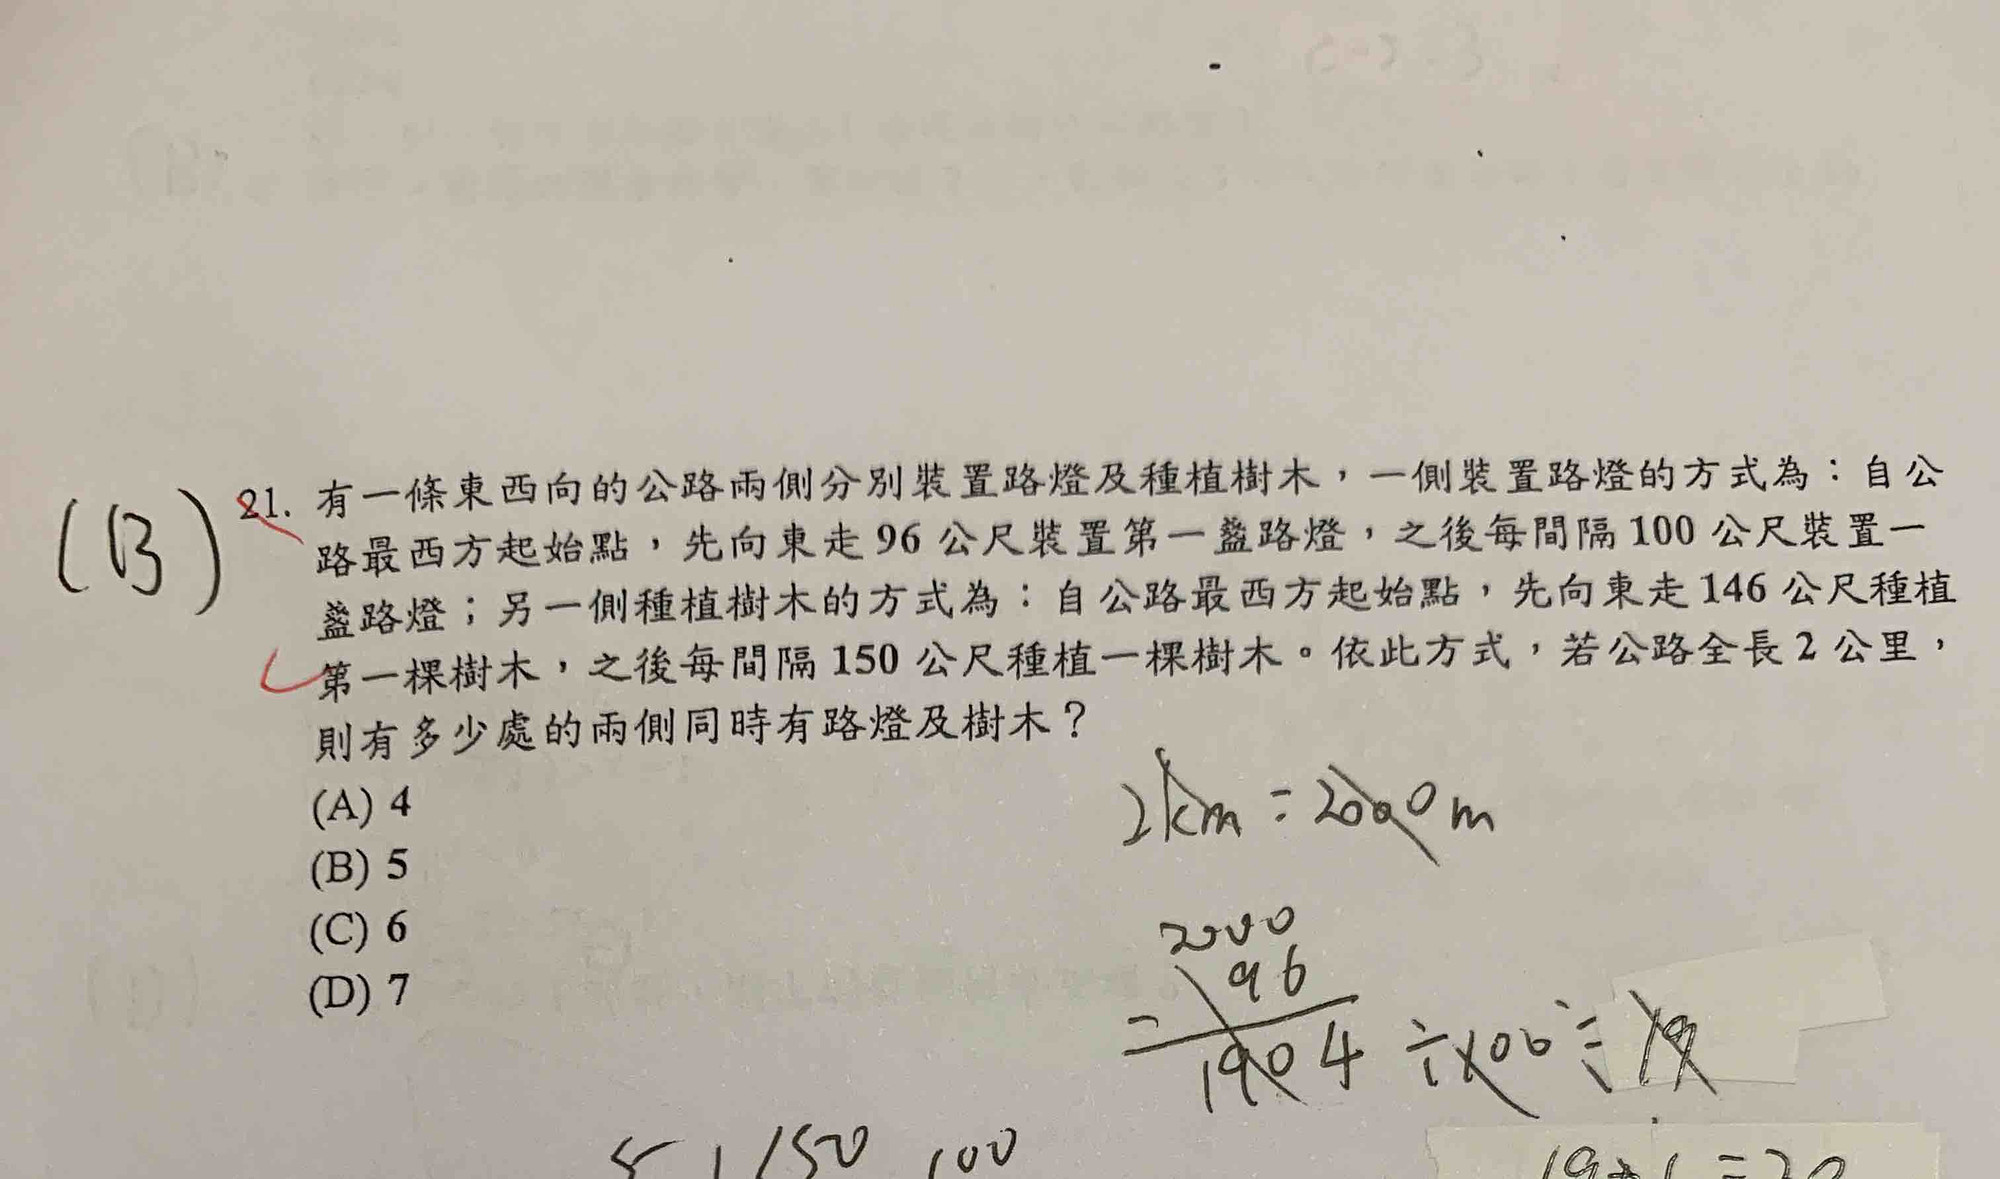 (B) 21. 有一條東西向的公路兩側分別裝置路燈及種植樹木，一側裝置路燈的方式為：自公
路最西方起始點，先向東走 96 公尺裝置第一盞路燈，之後每間隔 100 公尺裝置一
盞路燈；另一側種植樹木的方式為：自公路最西方起始點，先向東走 146 公尺種植
第一棵樹木，之後每間隔 150 公尺種植一棵樹木。依此方式，若公路全長 2 公里，
則有多少處的兩側同時有路燈及樹木？
(A) 4
(B) 5
(C) 6
(D) 7
2km = 2000m
2000
96
1904 ÷ 100 = 19
5 150 100
19+1=20